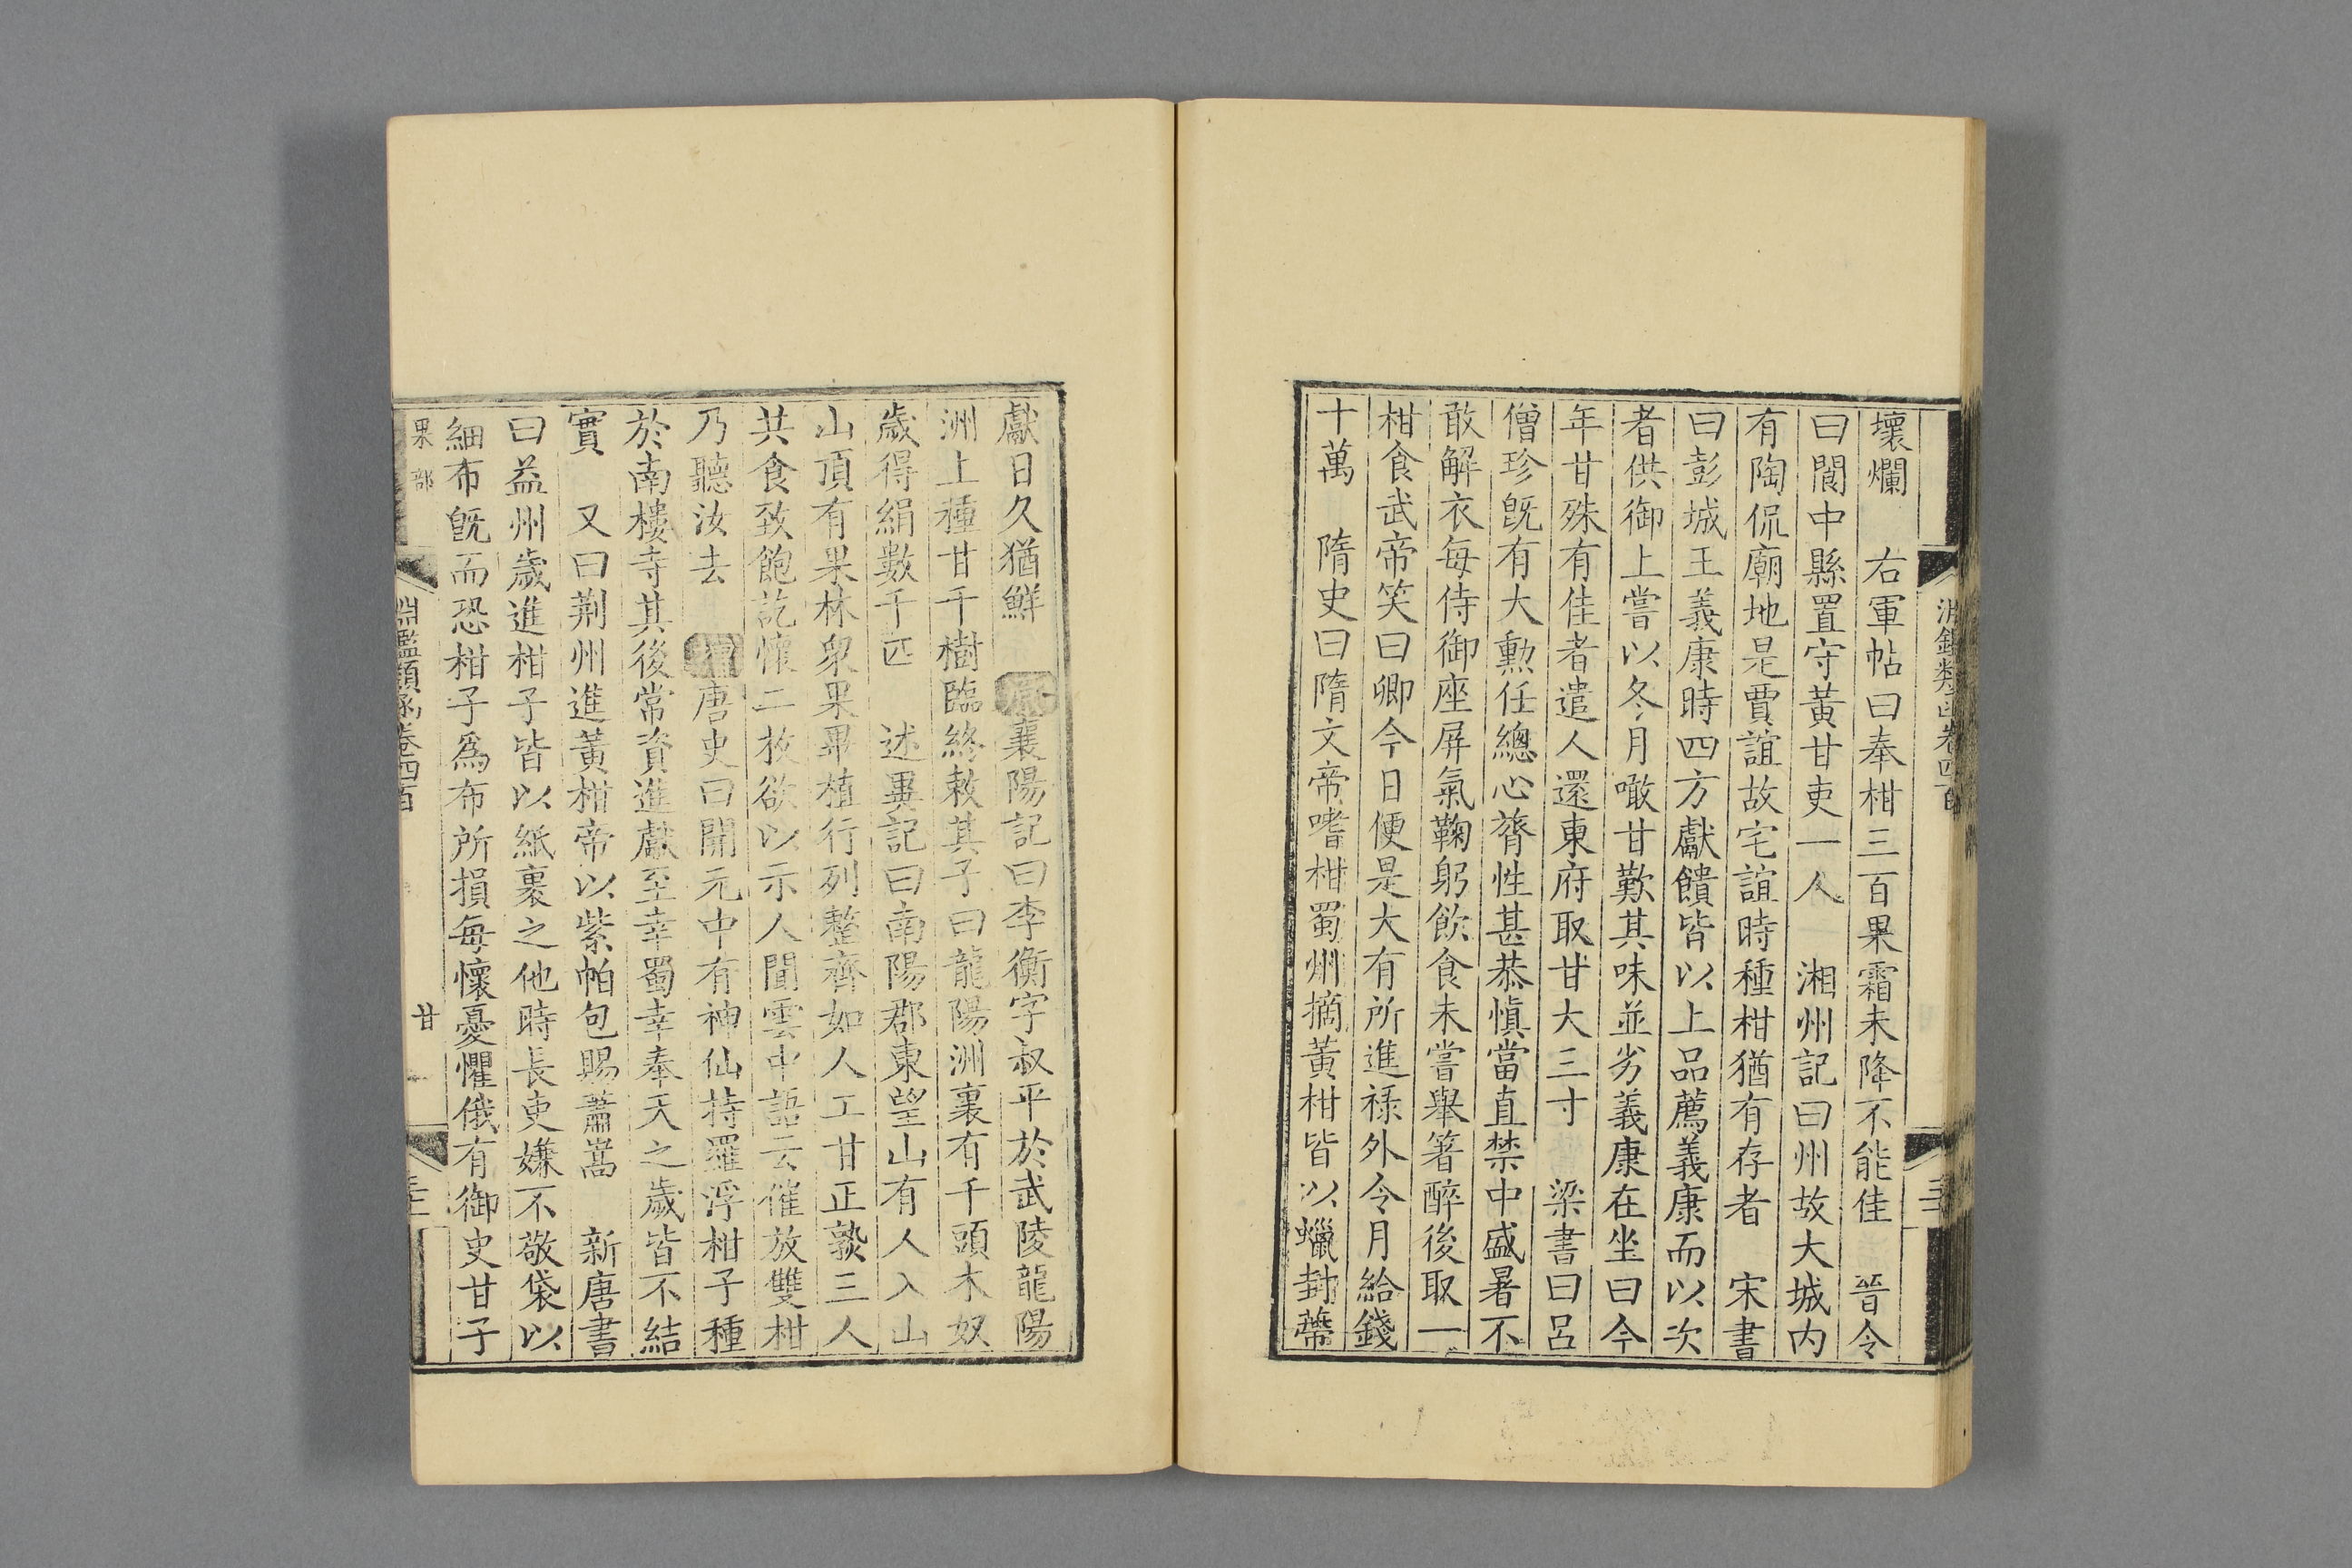 壞爛　右軍帖曰奉柑三百果霜未降不能佳　晉令
曰閬中縣置守黃甘吏一人　湘州記曰州故大城内
有陶侃廟地是賈誼故宅誼時種柑猶有存者　宋書
曰彭城王義康時四方獻饋皆以上品薦義康而以次
者供御上嘗以冬月噉甘歎其味並劣義康在坐曰今
年甘殊有佳者遣人還東府取甘大三寸　梁書曰呂
僧珍旣有大勲任總心膂性甚恭愼當直禁中盛暑不
敢解衣每侍御座屏氣鞠躬飲食未嘗舉箸醉後取一
柑食武帝笑曰卿今日便是大有所進祿外令月給錢
十萬　隋史曰隋文帝嗜柑蜀州摘黃柑皆以蠟封蔕
獻日久猶鮮　原襄陽記曰李衡字叔平於武陵龍陽
洲上種甘千樹臨終敕其子曰龍陽洲裏有千頭木奴
歲得絹數千匹　述異記曰南陽郡東望山有人入山
山頂有果林衆果畢植行列整齊如人工甘正熟三人
共食致飽訖懷二枚欲以示人聞雲中語云催放雙柑
乃聽汝去　增唐史曰開元中有神仙持羅浮柑子種
於南樓寺其後常資進獻至幸蜀幸奉天之歲皆不結
實　又曰荆州進黃柑帝以紫帕包賜蕭嵩　新唐書
曰益州歲進柑子皆以紙裹之他時長吏嫌不敬袋以
細布旣而恐柑子爲布所損每懷憂懼俄有御史甘子
果部　淵鑑類函卷四百　甘一